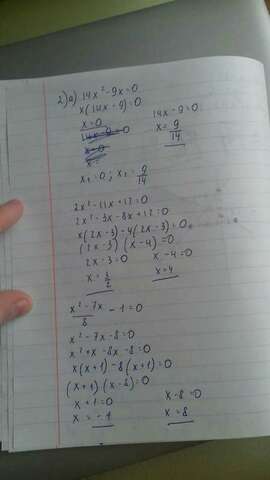 2) a) 14x² - 9x = 0
x(14x - 9) = 0
x = 0 14x - 9 = 0
x = 9/14
x =
x₁ = 0 ; x₂ = 9/14
2x² - 11x + 12 = 0
2x² - 3x - 8x + 12 = 0
x(2x - 3) - 4(2x - 3) = 0
(2x - 3) (x - 4) = 0
2x - 3 = 0 x - 4 = 0
x = 3/2 x = 4
x² - 7x / 8 - 1 = 0
x² - 7x - 8 = 0
x² + x - 8x - 8 = 0
x(x + 1) - 8(x + 1) = 0
(x + 1) (x - 8) = 0
x + 1 = 0 x - 8 = 0
x = - 1 x = 8